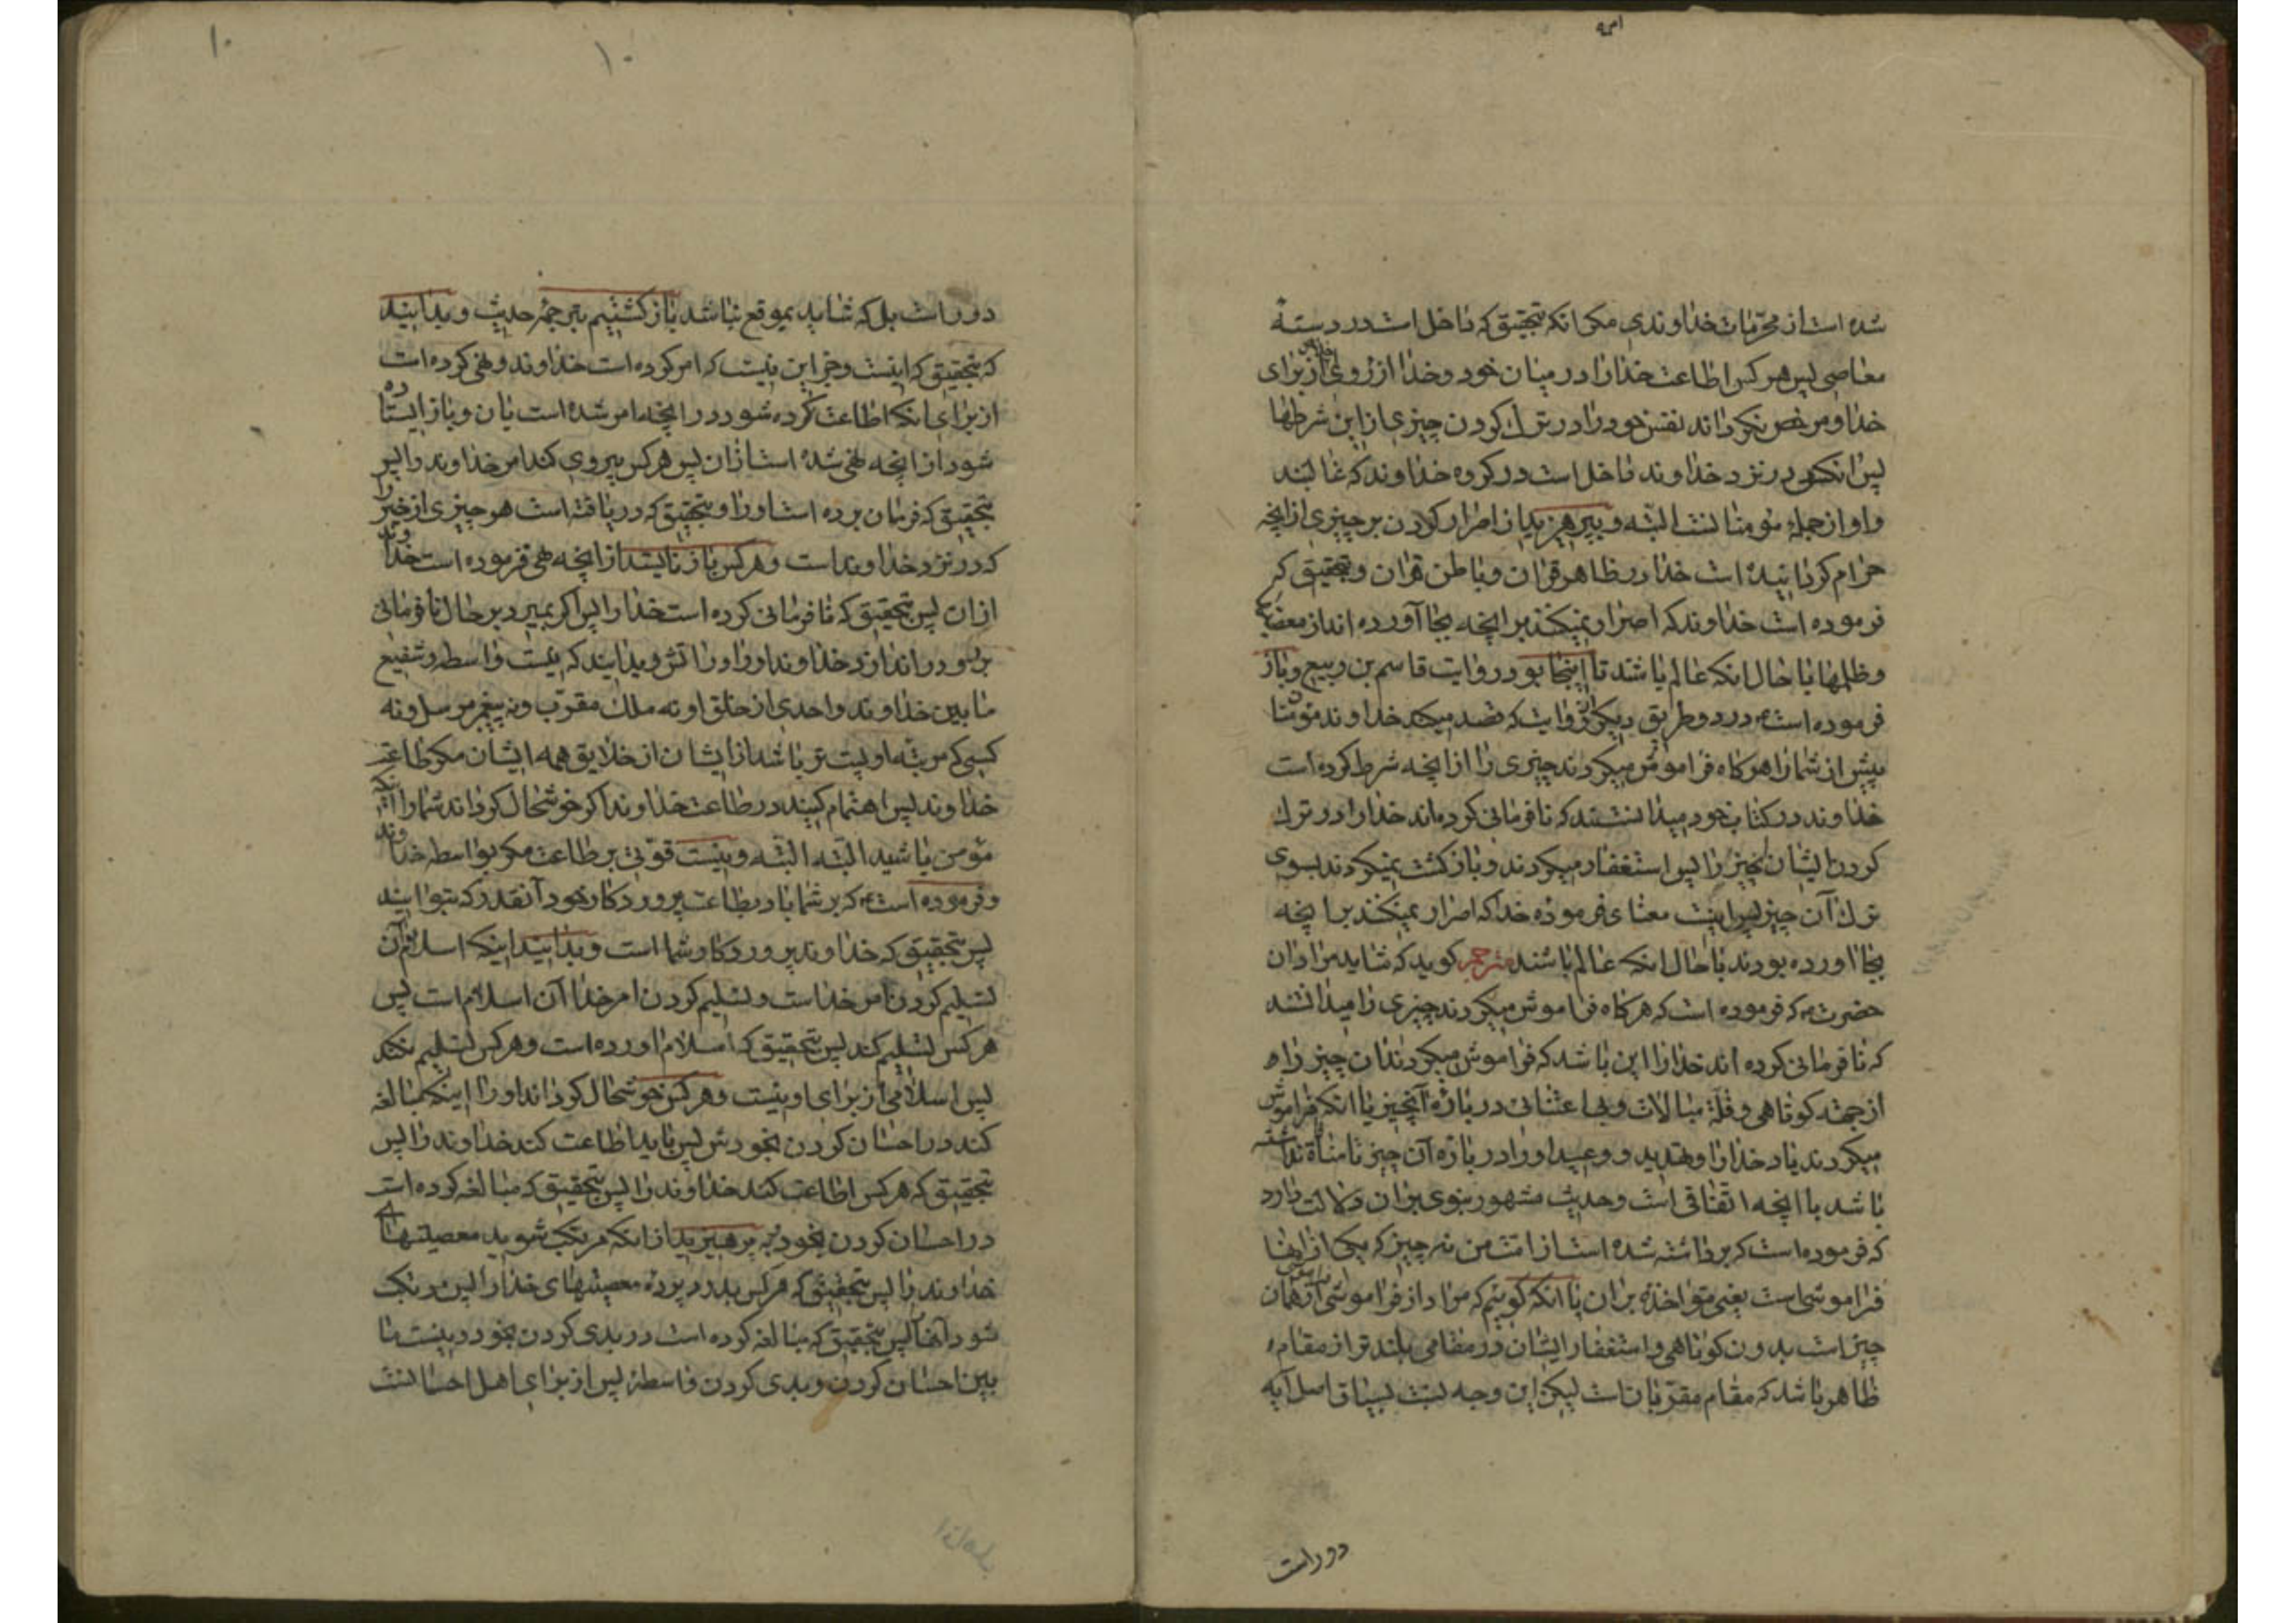 شده است از محرمات خداوندی مکر انکه بتحقیق که داخل است در دسته
معاصی پس هر کس اطاعت خدا را در میان خود و خدا از روی اخلاص از برای
خدا و مرخص نکرداند نفس خود را در ترك کردن چیزی از این شرطها
پس انکس در نزد خداوند داخل است در کروه خداوند که غالبند
و او از جمله مؤمنا نست البته و بپرهیزید از اصرار کردن بر چیزی از انچه
حرام کردانیده است خدا در ظاهر قران و باطن قران و بتحقیق که
فرموده است خداوند که اصرار نمیکنند بر انچه بجا آورده اند از
وظلمها با حال انکه عالم باشند تا اینجا بود روایت قاسم بن ربیع و باز
فرموده است در دو طریق دیکر روایت که قصد میکند خداوند مؤمنان
پیش از شما را هرکاه فراموش میکردند چیزی را از انچه شرط کرده است
خداوند در کتاب خود میدانستند که نافرمانی کرده اند خدا را در ترك
کردن ایشان انچیز را پس استغفار میکردند و بازکشت نمیکردند بسوی
ترك آن چیز پس اینست معنای فرموده خدا که اصرار نمیکنند بر انچه
بجا اورده بودند با حال انکه عالم باشند مترجم کوید که شاید مراد ان
حضرت که فرموده است که هرکاه فراموش میکردند چیزی را میدانستند
که نافرمانی کرده اند خدا را این باشد که فراموش میکردند ان چیز را
از جهة کوتاهی و قلة مبالات و بی اعتنائی در باره آنچیز یا انکه فراموش
میکردند یاد خدا را و تهدید و وعید او را در باره آن چیز تا منافاة نداشته
باشد با انچه اتفاقی است و حدیث مشهور نبوی بران دلالت دارد
که فرموده است که برداشته شده است از امت من نه چیز که یکی از انها
فراموشی است یعنی مؤاخذه بران یا انکه کوئیم که مراد از فراموشی همان
چیز است بدون کوتاهی و استغفار ایشان در مقامی بلندتر از مقام
ظاهر باشد که مقام مقربان است لیکن این وجه نسبت بسیاق اصل آیه
دور است
۱۰
۱۰
دور است بلکه شاید بموقع نباشد بازکشتیم بترجمۀ حدیث و بدانید
که بتحقیق که اینست و جز این نیست که امر کرده است خداوند و نهی کرده است
از برای انکه اطاعت کرده شود در انچه امر شده است بان و باز ایستاده
شود از انچه نهی شده است ازان پس هر کس پیروی کند امر خداوند را پس
بتحقیق که فرمان برده است او را و بتحقیق که دریافته است هر چیزی از خیر را
که در نزد خداوند است و هر کس باز نایستد از انچه نهی فرموده است خداوند
ازان پس بتحقیق که نافرمانی کرده است خدا را پس اکر بمیرد بر حال نافرمانی
بر رو در اندازد خداوند او را در اتش و بدانید که نیست واسطه و شفیع
ما بین خداوند و احدی از خلق او نه ملك مقرب و نه پیغمبر مرسل و نه
کسی که مرتبه او پست تر باشد از ایشان از خلایق همه ایشان مکر طاعت
خداوند پس اهتمام کنید در طاعت خداوند اکر خوشحال کرداند شما را اینکه
مؤمن باشید البته البته و نیست قوتی بر طاعت مکر بواسطه خداوند
و فرموده است که بر شما باد بطاعت پروردکار خود آنقدر که بتوانید
پس بتحقیق که خداوند پروردکار شما است و بدانید اینکه اسلام آن
تسلیم کردن امر خداست و تسلیم کردن امر خدا آن اسلام است پس
هر کس تسلیم کند پس بتحقیق که اسلام اورده است و هر کس تسلیم نکند
پس اسلامی از برای او نیست و هر کس خوشحال کرداند او را اینکه مبالغه
کند در احسان کردن بخودش پس باید اطاعت کند خداوند را پس
بتحقیق که هر کس اطاعت کند خداوند را پس بتحقیق که مبالغه کرده است
در احسان کردن بخود و بپرهیزید از انکه مرتکب شوید معصیتهای
خداوند را پس بتحقیق که هر کس بدرد پرده معصیتهای خدا را پس مرتکب
شود آنها را پس بتحقیق که مبالغه کرده است در بدی کردن بخود و نیست ما
بین احسان کردن و بدی کردن واسطه پس از برای اهل احسانست